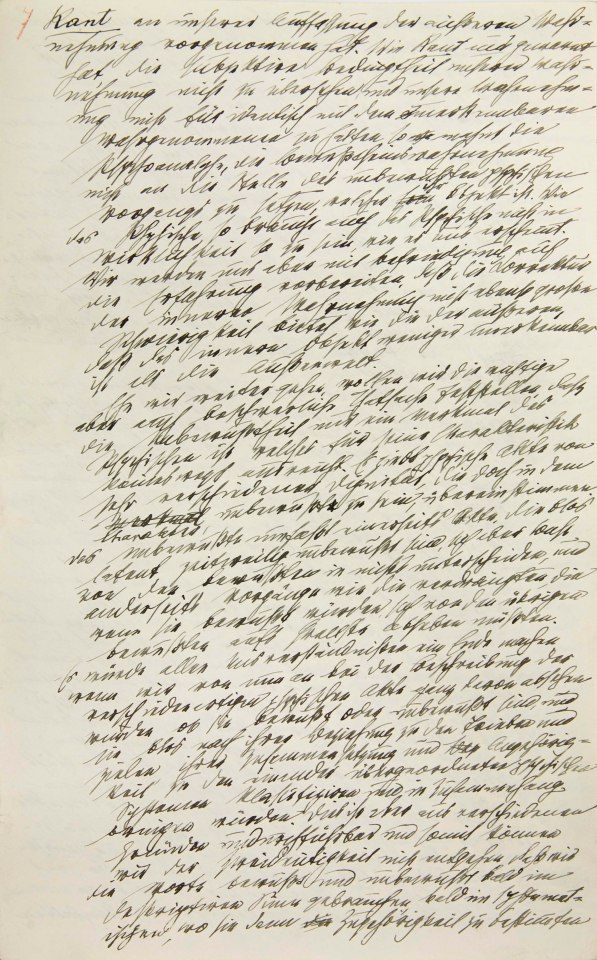 7 Kant an unserer Auffassung der äußeren Wahr-
nehmung vorgenommen hat. Wie Kant uns gewarnt
hat die subjektive Bedingtheit unserer Wahr-
nehmung nicht zu übersehen und unsere Wahrnehm-
ung nicht für identisch mit dem unerkennbaren
Wahrgenommenen zu halten so mahnt die
Psychoanalyse, die Bewußtseinswahrnehmung
nicht an die Stelle des unbewußten psychischen
Vorgangs zu setzen, welcher ihr Objekt ist. Wie
das Physische, so braucht auch das Psychische nicht in
Wirklichkeit so zu sein, wie es uns erscheint.
Wir werden uns aber mit Befriedigung auf
die Erfahrung vorbereiten, daß die Correktur
der inneren Wahrnehmung nicht ebenso große
Schwierigkeit bietet wie die der äußeren,
daß das innere Objekt weniger unerkennbar
ist als die Außenwelt.
Ehe wir weiter gehen, wollen wir die wichtige
aber auch beschwerliche Tatsache feststellen, daß
die Unbewußtheit nur ein Merkmal des
Psychischen ist welches für seine Charakteristik
keineswegs ausreicht. Es giebt psychische Akte von
sehr verschiedener Dignität, die doch in dem
Charakter, unbewußt zu sein, übereinstimmen.
Das Unbewußte umfaßt einerseits Akte, die blos
latent, zeitweilig unbewußt sind, sich aber sonst
von den bewußten in nichts unterscheiden, und
anderseits Vorgänge wie die verdrängten, die
wenn sie bewußt würden sich von den übrigen
bewußten aufs grellste abheben müßten.
Es würde allen Mißverständnissen ein Ende machen
wenn wir von nun an bei der Beschreibung der
verschiedenartigen psychischen Akte ganz davon absehen
würden ob sie bewußt oder unbewußt sind und
sie blos nach ihrer Beziehung zu den Trieben und
Zielen ihrer Zusammensetzung und Angehörig-
keit zu den einander übergeordneten psychischen
Systemen klassifiziren und in Zusammenhang
bringen würden. Dies ist aber aus verschiedenen
Gründen undurchführbar und somit können
wir der Zweideutigkeit nicht entgehen daß wir
die Worte bewußt und unbewußt bald im
deskriptiven Sinne gebrauchen bald im systemat-
ischen, wo sie dann Zugehörigkeit zu bestimmten